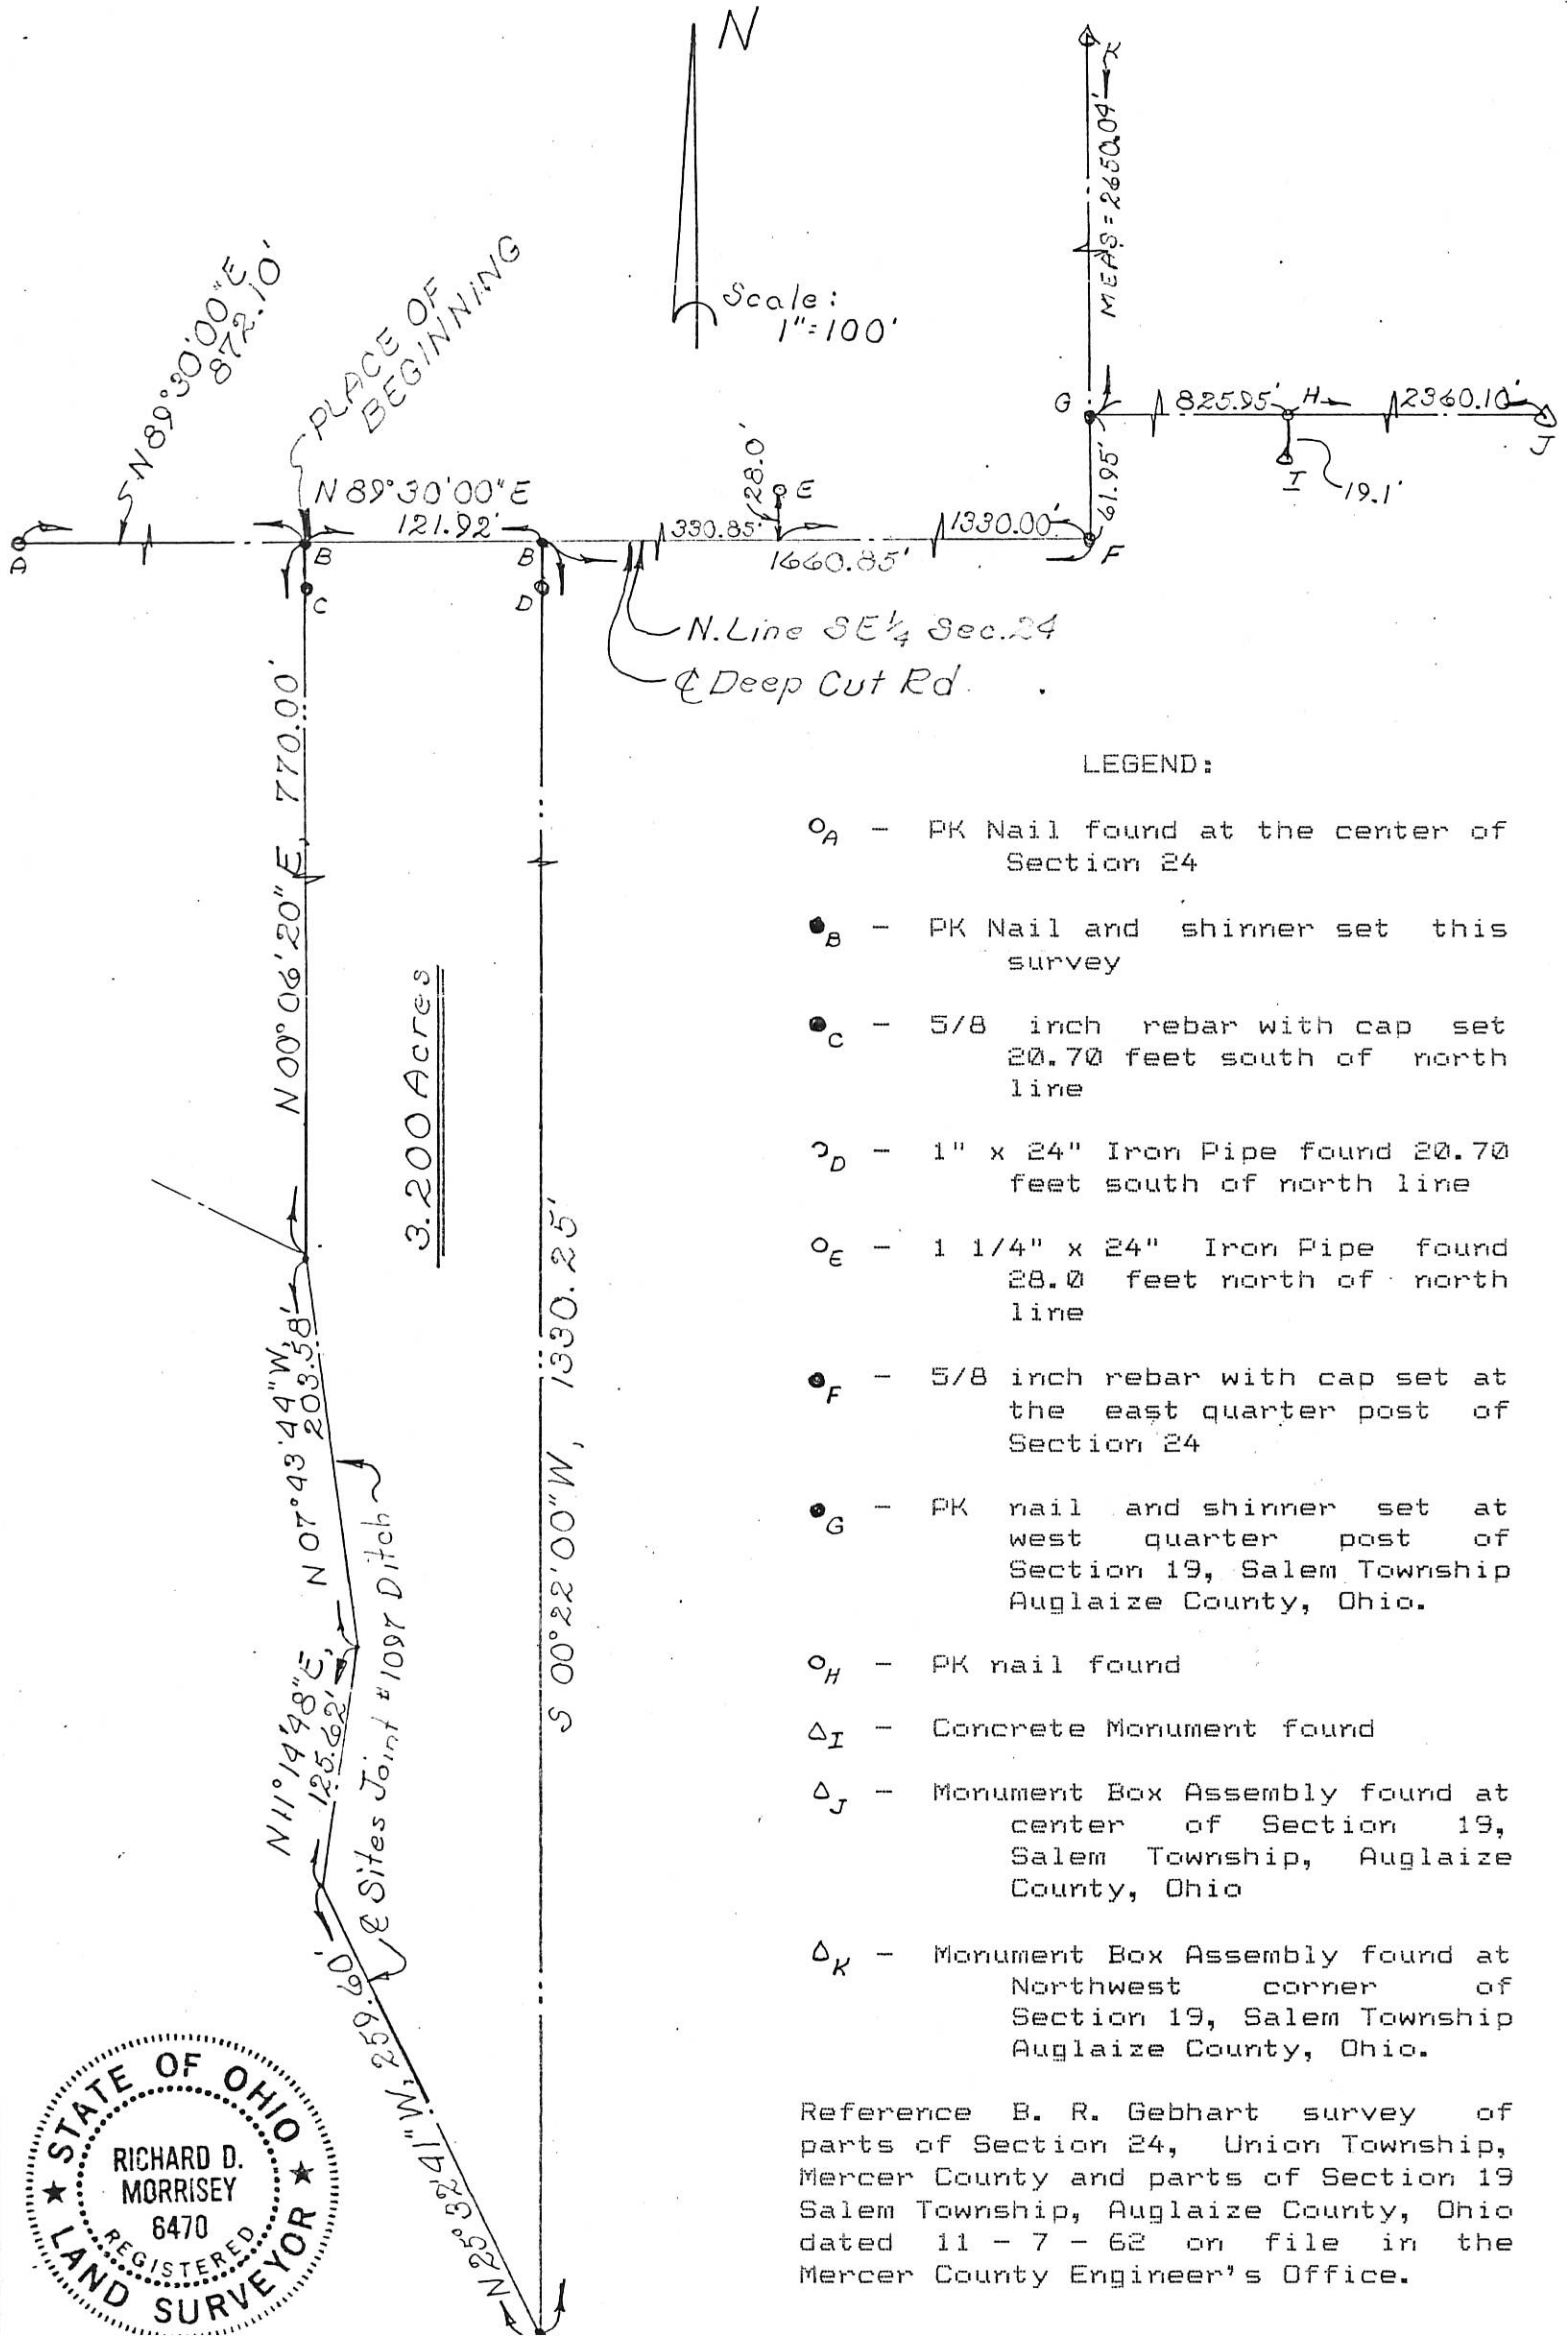 N
K
MEAS = 2650.04'
Scale:
1"=100'
N 89°30'00"E
872.10'
PLACE OF
BEGINNING
N 89°30'00"E
121.92'
28.0'
E
330.85'
1330.00'
1660.85'
G
825.95'
H
2360.10'
J
I
19.1'
61.95'
F
A
B
B
C
D
N. Line SE 1/4 Sec. 24
℄ Deep Cut Rd.
N 00°06'20" E, 770.00'
3.200 Acres
S 00°22'00"W, 1330.25'
N 07°43'44"W,
203.58'
N 11°14'48"E,
125.62'
℄ Sites Joint #1097 Ditch
N 25°32'41"W, 259.60'
LEGEND:
A - PK Nail found at the center of
Section 24
B - PK Nail and shinner set this
survey
C - 5/8 inch rebar with cap set
20.70 feet south of north
line
D - 1" x 24" Iron Pipe found 20.70
feet south of north line
E - 1 1/4" x 24" Iron Pipe found
28.0 feet north of north
line
F - 5/8 inch rebar with cap set at
the east quarter post of
Section 24
G - PK nail and shinner set at
west quarter post of
Section 19, Salem Township
Auglaize County, Ohio.
H - PK nail found
I - Concrete Monument found
J - Monument Box Assembly found at
center of Section 19,
Salem Township, Auglaize
County, Ohio
K - Monument Box Assembly found at
Northwest corner of
Section 19, Salem Township
Auglaize County, Ohio.
Reference B. R. Gebhart survey of
parts of Section 24, Union Township,
Mercer County and parts of Section 19
Salem Township, Auglaize County, Ohio
dated 11 - 7 - 62 on file in the
Mercer County Engineer's Office.
STATE OF OHIO
RICHARD D.
MORRISEY
6470
REGISTERED
LAND SURVEYOR